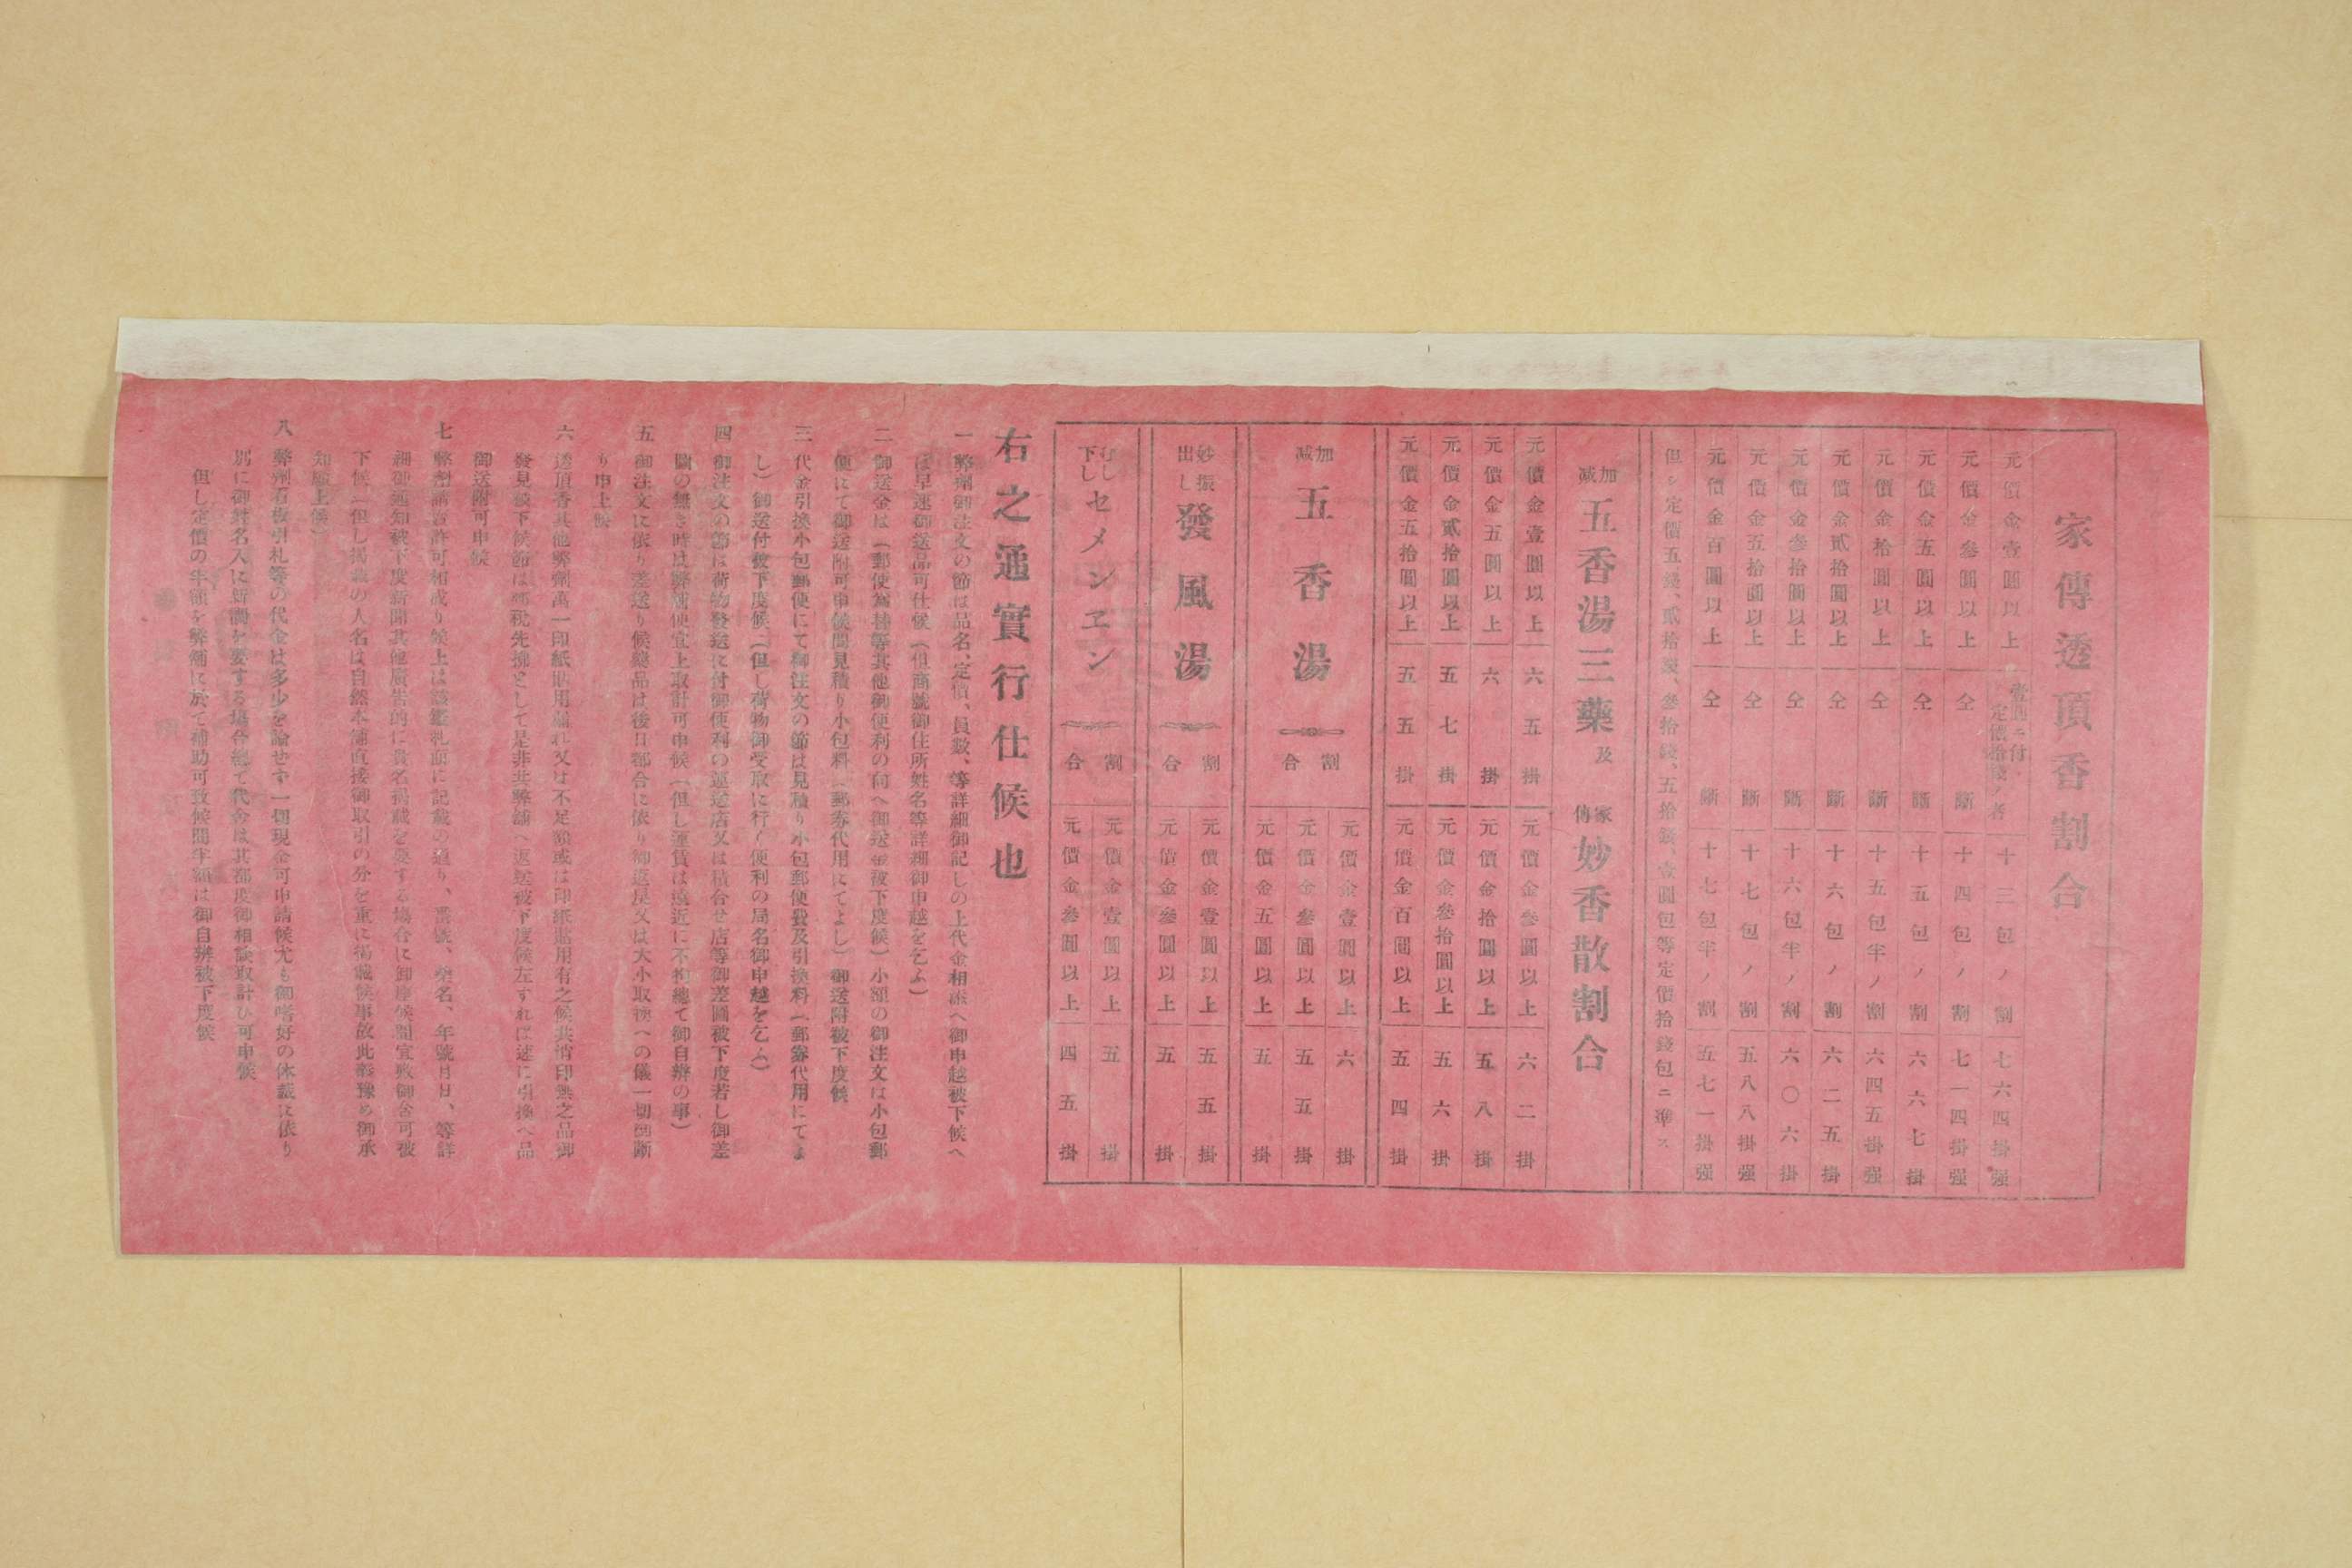 家傳透頂香割合
元價金壹圓以上 壹包ニ付 定價拾錢ノ者 十三包ノ割 七六四掛强
元價金參圓以上 仝 斷 十四包ノ割 七一四掛强
元價金五圓以上 仝 斷 十五包ノ割 六六七掛
元價金拾圓以上 仝 斷 十五包半ノ割 六四五掛强
元價金貳拾圓以上 仝 斷 十六包ノ割 六二五掛
元價金參拾圓以上 仝 斷 十六包半ノ割 六〇六掛
元價金五拾圓以上 仝 斷 十七包ノ割 五八八掛强
元價金百圓以上 仝 斷 十七包半ノ割 五七一掛强
但シ定價五錢、貳拾錢、參拾錢、五拾錢、壹圓包等定價拾錢包ニ準ス
加减五香湯三藥及家傳妙香散割合
元價金壹圓以上 六五掛 元價金參圓以上 六二掛
元價金五圓以上 六掛 元價金拾圓以上 五八掛
元價金貳拾圓以上 五七掛 元價金參拾圓以上 五六掛
元價金五拾圓以上 五五掛 元價金百圓以上 五四掛
加减五香湯割合
元價金壹圓以上 六掛
元價金參圓以上 五五掛
元價金五圓以上 五掛
妙振出し發風湯割合
元價金壹圓以上 五五掛
元價金參圓以上 五掛
むし下しセメンヱン割合
元價金壹圓以上 五掛
元價金參圓以上 四五掛
右之通實行仕候也
一 弊劑御注文の節は品名、定價、員數、等詳細御記しの上代金相添へ御申越被下候へ
は早速御送品可仕候(但商號御住所姓名等詳細御申越を乞ふ)
二 御送金は(郵便爲替等其他御便利の向へ御送金被下度候)小額の御注文は小包郵
便にて御送附可申候間見積り小包料(郵券代用にてよし)御送附被下度候
三 代金引換小包郵便にて御注文の節は見積り小包郵便料及引換料(郵券代用にてよ
し)御送付被下度候(但し荷物御受取に行く便利の局名御申越を乞ふ)
四 御注文の節は荷物發送に付御便利の運送店又は積合せ店等御差圖被下度若し御差
圖の無き時は弊舗便宜上取計可申候(但し運賃は遠近に不拘總て御自辨の事)
五 御注文に依り差送り候藥品は後日都合に依り御返戻又は大小取換への儀一切御斷
り申上候
六 透頂香其他弊劑萬一印紙貼用漏れ又は不足額或は印紙貼用有之候共消印無之品御
發見被下候節は郵税先拂として是非共弊舗へ返送被下度候左すれば速に引換へ品
御送附可申候
七 弊劑請賣許可相成り候上は該鑑札面に記載の通り、番號、藥名、年號月日、等詳
細御通知被下度新聞其他廣告的に貴名掲載を要する場合に御座候間宜敷御含可被
下候(但し掲載の人名は自然本舗直接御取引の分を重に掲載候事故此段豫め御承
知願上候)
八 弊劑看板引札等の代金は多少を論せず一切現金可申請候尤も御嗜好の体裁に依り
別に御姓名入に新調を要する場合總て代金は其都度御相談取計ひ可申候
但し定價の半額を弊舗に於て補助可致候間半額は御自辨被下度候